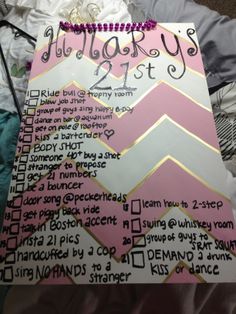 Hillary's
21st
1 Ride bull @ trophy room
2 blow job shot
3 group of guys sing happy b-day
4 dance on bar @ aquarium
5 get on pole @ rooftop
6 kiss a bartender
7 BODY SHOT
8 someone 40+ buy a shot
9 stranger to propose
10 get 21 numbers
11 be a bouncer
12 door song @ peckerheads
13 get piggy back ride
14 talk in Boston accent
15 insta 21 pics
16 handcuffed by a cop
17 sing NO HANDS to a
stranger
18 learn how to 2-step
19 swing @ whiskey room
20 group of guys to
SRAT SQUAT
21 DEMAND a drunk
kiss or dance